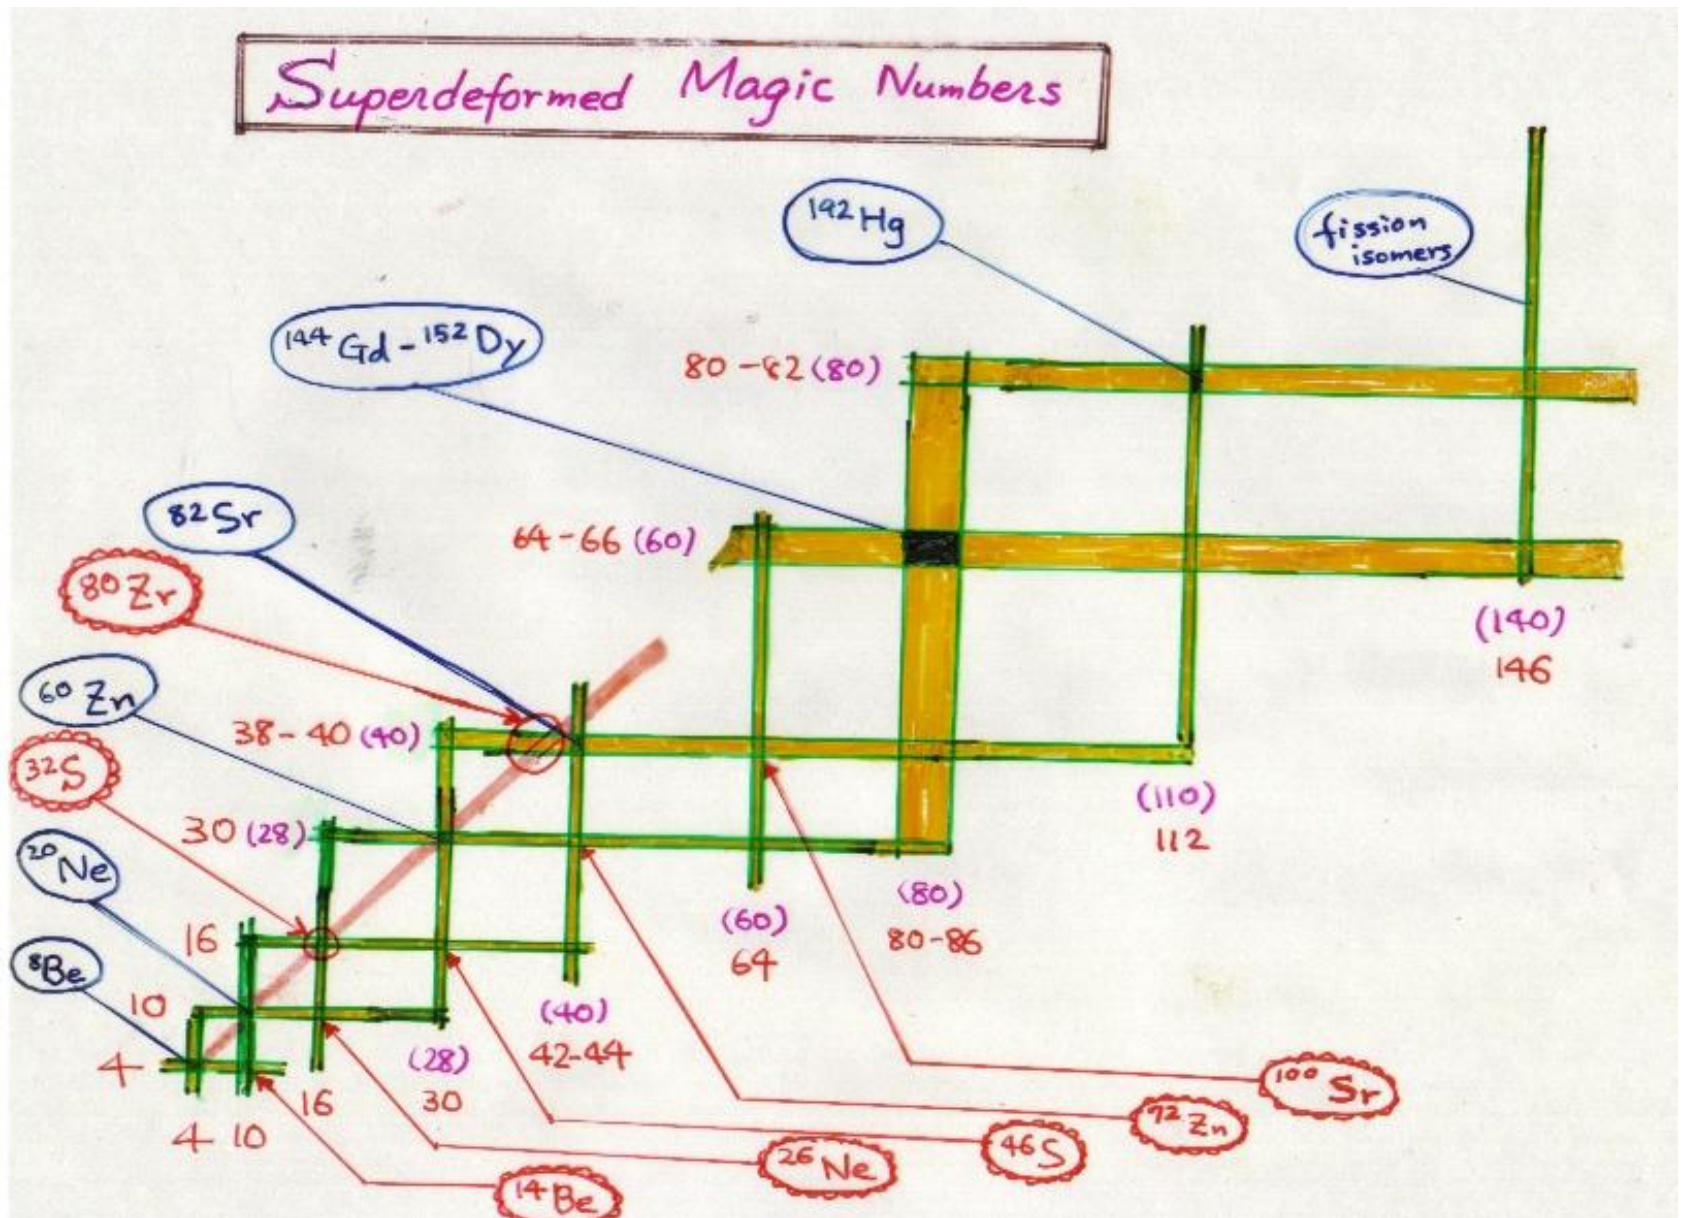 Superdeformed Magic Numbers
¹⁹²Hg
fission
isomers
¹⁴⁴Gd - ¹⁵²Dy
80 - 82 (80)
⁸²Sr
64 - 66 (60)
⁸⁰Zr
(140)
146
⁶⁰Zn
38 - 40 (40)
³²S
(110)
112
30 (28)
²⁰Ne
(80)
80-86
(60)
64
16
⁸Be
10
(40)
42-44
4
(28)
30
16
4 10
¹⁰⁰Sr
⁷²Zn
⁴⁶S
²⁶Ne
¹⁴Be